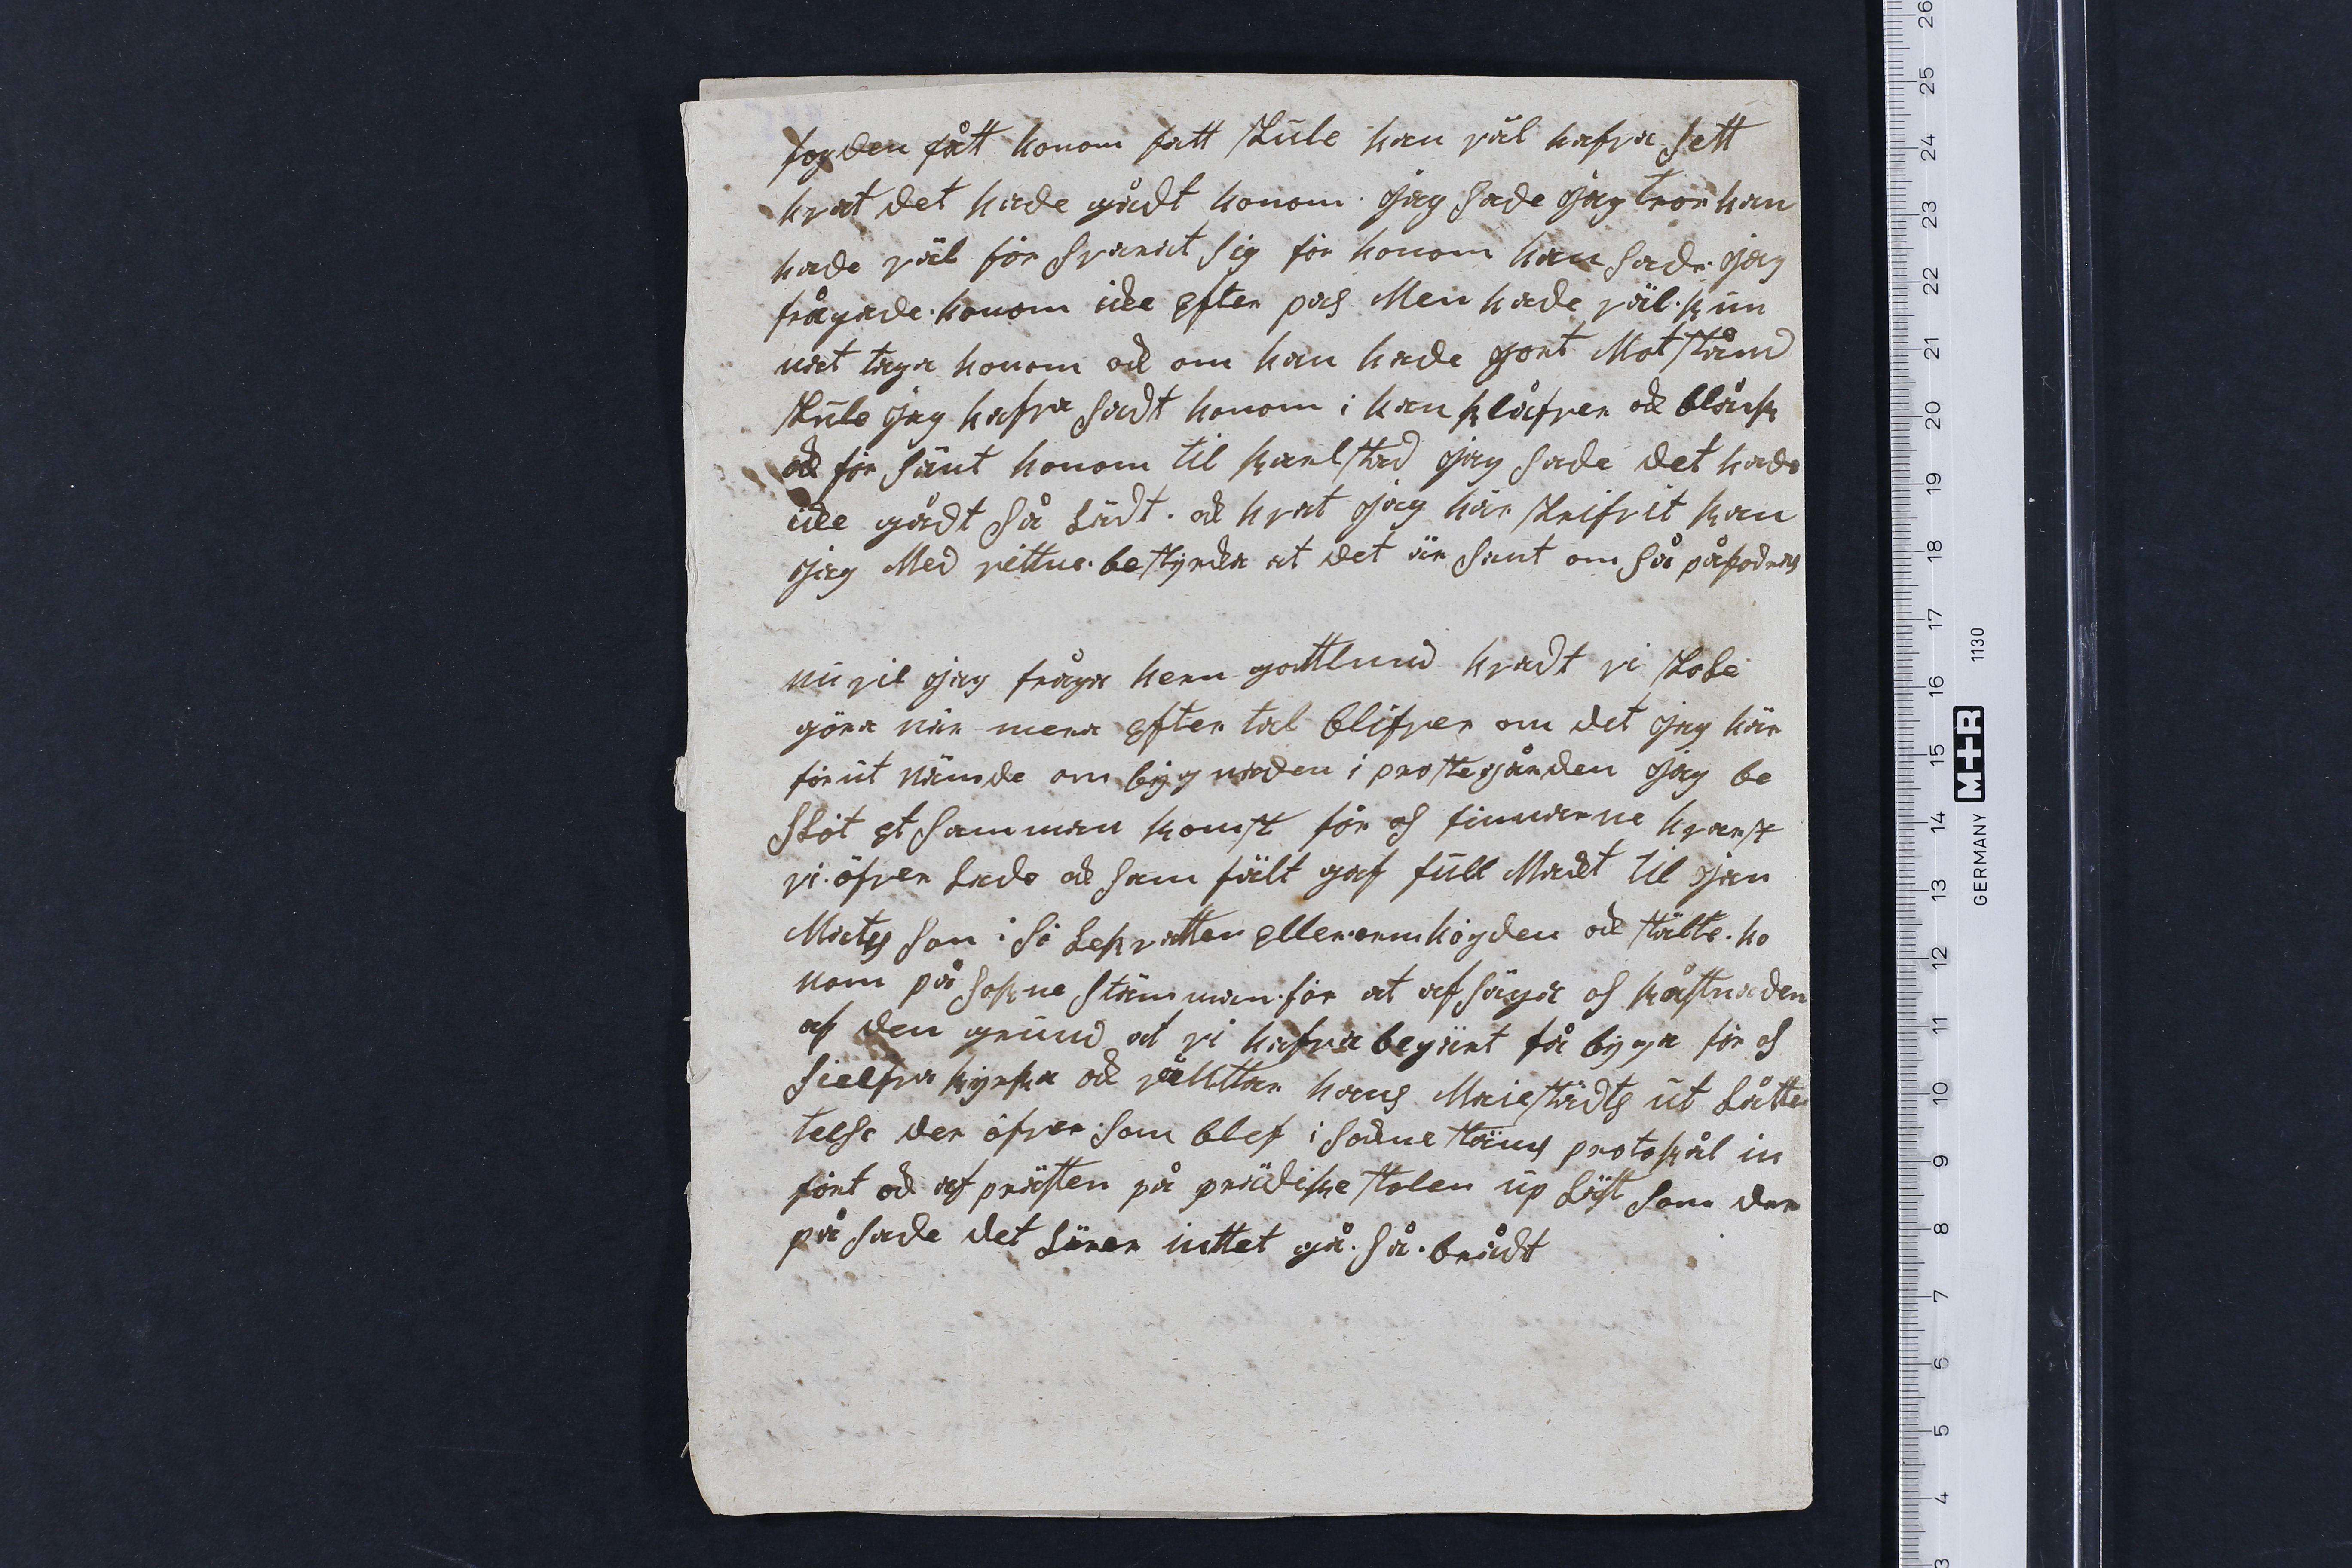 fogden fått honom fatt skule han väl hafva sett
hvat det hade gådt honom. jag sade jag tror han
hade väl för svarat sig för honom han sade jag
frågade honom icke efter pas Men hade väl kun
nat taga honom och om han hade gort Motstånd
skule jag hafva sadt honom i han klåfver och blånk
och för sänt honom til karlstad jag sade det hade
icke gådt så Lädt. och hvat jag här skrifvit kan
jag Med vittne bestyrcka at det är sant om så påfodras
nu vil jag fråga herr gottlund hvadt vi skole
göra när mera efter tal blifver om det jag här
förut nämde om bygnaden i prostegården jag be
slöt et samman komst för os finnarne hvarst
vi öfver Lade och sam fält gaf full Mackt til jan
Mats son i sö Lekvatten eller ormhögden och stälte ho
nom på sokne stämman för at af säga os kåstnaden
af den grund at vi hafva begärt få byga för os
sielfva kyrka och vän̈ttar hans Maiestädts ut Låtte
telse der öfver som blef i sockne stäms protokål in
fört och af prästen på prädike stolen up Läst som der
på sade det Lärer inttet gå så brådt
26
25
24
23
22
21
20
19
18
17
16
15
14
13
12
11
10
9
8
7
6
5
4
3
GERMANY M+R 1130